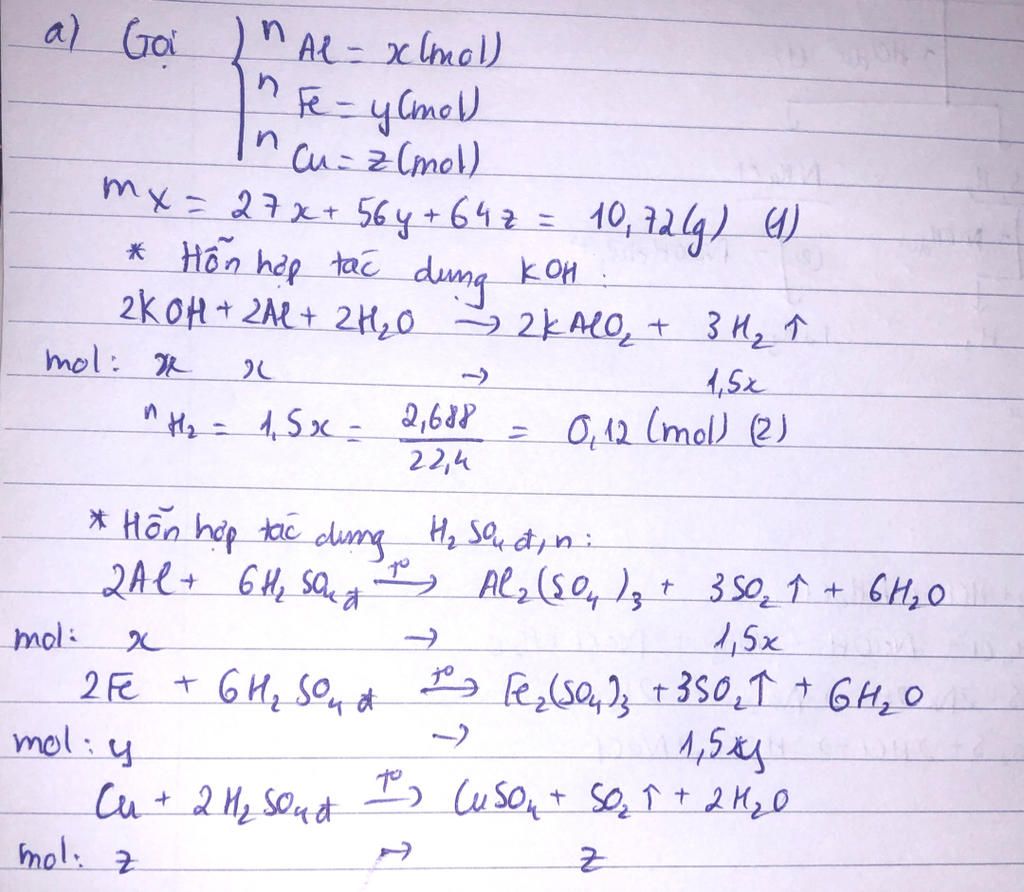 a) Gọi { nAl = x (mol)
nFe = y (mol)
nCu = z (mol)
mX = 27x + 56y + 64z = 10,72 (g) (1)
* Hỗn hợp tác dụng KOH :
2KOH + 2Al + 2H₂O → 2KAlO₂ + 3H₂ ↑
mol: x x → 1,5x
nH₂ = 1,5x = 2,688/22,4 = 0,12 (mol) (2)
* Hỗn hợp tác dụng H₂SO₄ đ, n :
2Al + 6H₂SO₄ đ →(t°) Al₂(SO₄)₃ + 3SO₂ ↑ + 6H₂O
mol: x → 1,5x
2Fe + 6H₂SO₄ đ →(t°) Fe₂(SO₄)₃ + 3SO₂ ↑ + 6H₂O
mol: y → 1,5y
Cu + 2H₂SO₄ đ →(t°) CuSO₄ + SO₂ ↑ + 2H₂O
mol: z → z